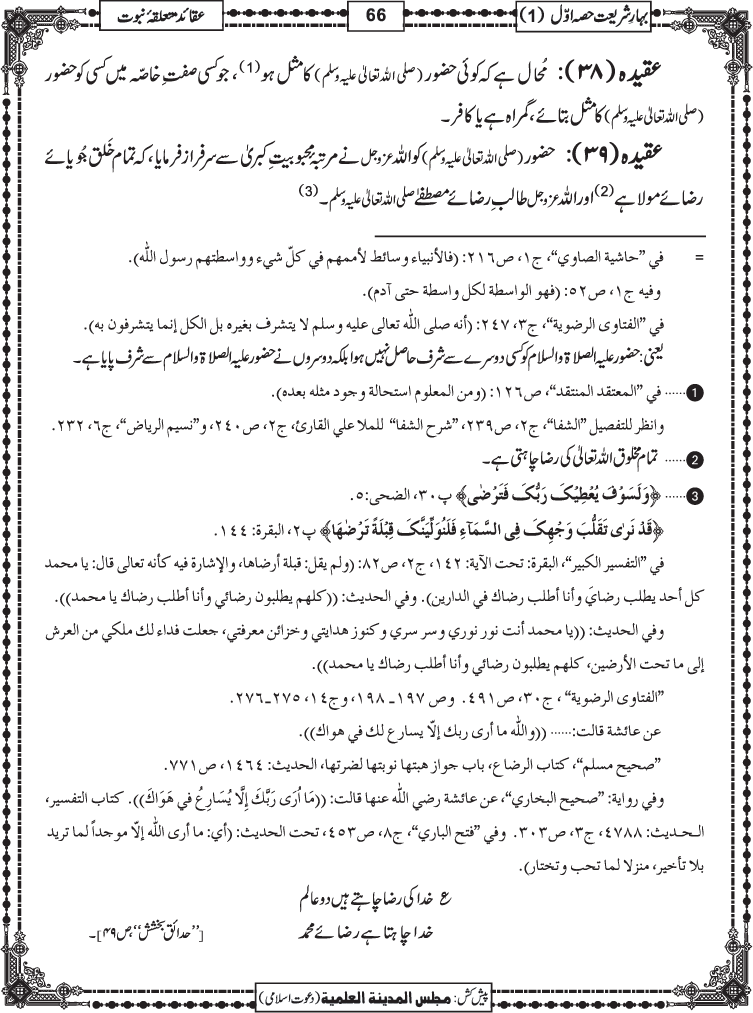 بہارِ شریعت حصہ اوّل (1)
66
عقائد متعلقۂ نبوت
عقیدہ (۳۸): مُحال ہے کہ کوئی حضور (صلی اللہ تعالیٰ علیہ وسلم) کا مثل ہو(1)، جو کسی صفتِ خاصّہ میں کسی کو حضور
(صلی اللہ تعالیٰ علیہ وسلم) کا مثل بتائے، گمراہ ہے یا کافر۔
عقیدہ (۳۹): حضور (صلی اللہ تعالیٰ علیہ وسلم) کو اللہ عزوجل نے مرتبۂ محبوبیتِ کبریٰ سے سرفراز فرمایا، کہ تمام خَلق جُویائے
رضائے مولا ہے(2) اور اللہ عزوجل طالبِ رضائے مصطفےٰ صلی اللہ تعالیٰ علیہ وسلم۔(3)
= في ”حاشية الصاوي“، ج۱، ص۲۱٦: (فالأنبياء وسائط لأممهم في كلّ شيء وواسطتهم رسول الله).
وفيه ج۱، ص۵۲: (فهو الواسطة لكل واسطة حتى آدم).
في ”الفتاوى الرضوية“، ج۳، ۲٤۷: (أنه صلى الله تعالى عليه وسلم لا يتشرف بغيره بل الكل إنما يتشرفون به).
یعنی: حضور علیہ الصلاۃ والسلام کو کسی دوسرے سے شرف حاصل نہیں ہوا بلکہ دوسروں نے حضور علیہ الصلاۃ والسلام سے شرف پایا ہے۔
1 ...... في ”المعتقد المنتقد“، ص۱۲٦: (ومن المعلوم استحالة وجود مثله بعده).
وانظر للتفصيل ”الشفا“، ج۲، ص۲۳۹، ”شرح الشفا“ للملا علي القارئ، ج۲، ص۲٤۰، و”نسيم الرياض“، ج٦، ۲۳۲.
2 ...... تمام مخلوق اللہ تعالیٰ کی رضا چاہتی ہے۔
3 ...... ﴿وَلَسَوْفَ يُعْطِيْكَ رَبُّكَ فَتَرْضٰى﴾ پ۳۰، الضحى:۵.
﴿قَدْ نَرٰى تَقَلُّبَ وَجْهِكَ فِى السَّمَآءِ فَلَنُوَلِّيَنَّكَ قِبْلَةً تَرْضٰهَا﴾ پ۲، البقرة: ۱٤٤.
في ”التفسير الكبير“، البقرة: تحت الآية: ۱٤۲، ج۲، ص۸۲: (ولم يقل: قبلة أرضاها، والإشارة فيه كأنه تعالى قال: يا محمد
كل أحد يطلب رضايَ وأنا أطلب رضاك في الدارين). وفي الحديث: ((كلهم يطلبون رضائي وأنا أطلب رضاك يا محمد)).
وفي الحديث: ((يا محمد أنت نور نوري وسر سري وكنوز هدايتي وخزائن معرفتي، جعلت فداء لك ملكي من العرش
إلى ما تحت الأرضين، كلهم يطلبون رضائي وأنا أطلب رضاك يا محمد)).
”الفتاوى الرضوية“، ج۳۰، ص٤۹۱. وص ۱۹۷ـ۱۹۸، وج۱٤، ۲۷۵ـ۲۷٦.
عن عائشة قالت:...... ((والله ما أرى ربك إلّا يسارع لك في هواك)).
”صحيح مسلم“، كتاب الرضاع، باب جواز هبتها نوبتها لضرتها، الحديث: ۱٤٦٤، ص۷۷۱.
وفي رواية: ”صحيح البخاري“، عن عائشة رضي الله عنها قالت: ((مَا أُرَى رَبَّكَ إِلَّا يُسَارِعُ في هَوَاكَ)). كتاب التفسير،
الـحـديث: ٤۷۸۸، ج۳، ص۳۰۳. وفي ”فتح الباري“، ج۸، ص٤۵۳، تحت الحديث: (أي: ما أرى الله إلّا موجداً لما تريد
بلا تأخير، منزلا لما تحب وتختار).
ع خدا کی رضا چاہتے ہیں دو عالم
خدا چاہتا ہے رضائے محمد
[’’حدائق بخشش‘‘، ص۴۹]۔
پیش کش: مجلس المدينة العلمية (دعوت اسلامی)